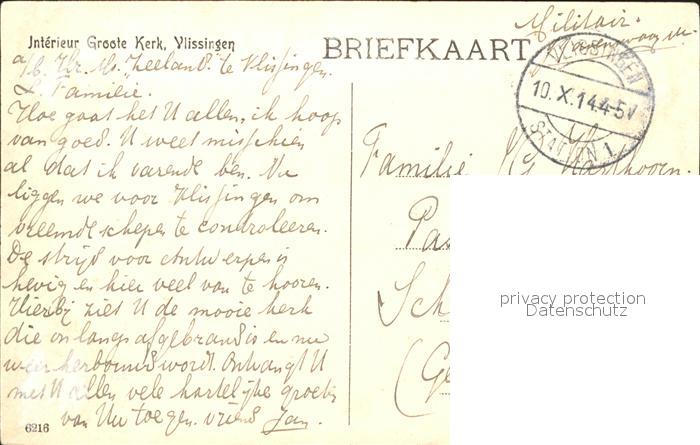 Intérieur Groote Kerk, Vlissingen
BRIEFKAART
Militair.
VLISSINGEN
10.X.14.4-5V
STATION 1
a/b. Hr. Ms. "Zeeland" te Vlissingen.
L. Familie.
Hoe gaat het U allen, ik hoop
van goed. U weet misschien
al dat ik varende ben. Nu
liggen we voor Vlissingen om
vreemde schepen te controleeren.
De strijd voor Antwerpen is
hevig en hier veel van te hooren.
Hierbij ziet U de mooie kerk
die onlangs afgebrand is en nu
weer herbouwd word. Ontvangt U
met U allen vele hartelijke groeten
van Uw toegen. vriend Jan.
Familie
Pas
Sch
(Ge
privacy protection
Datenschutz
6216